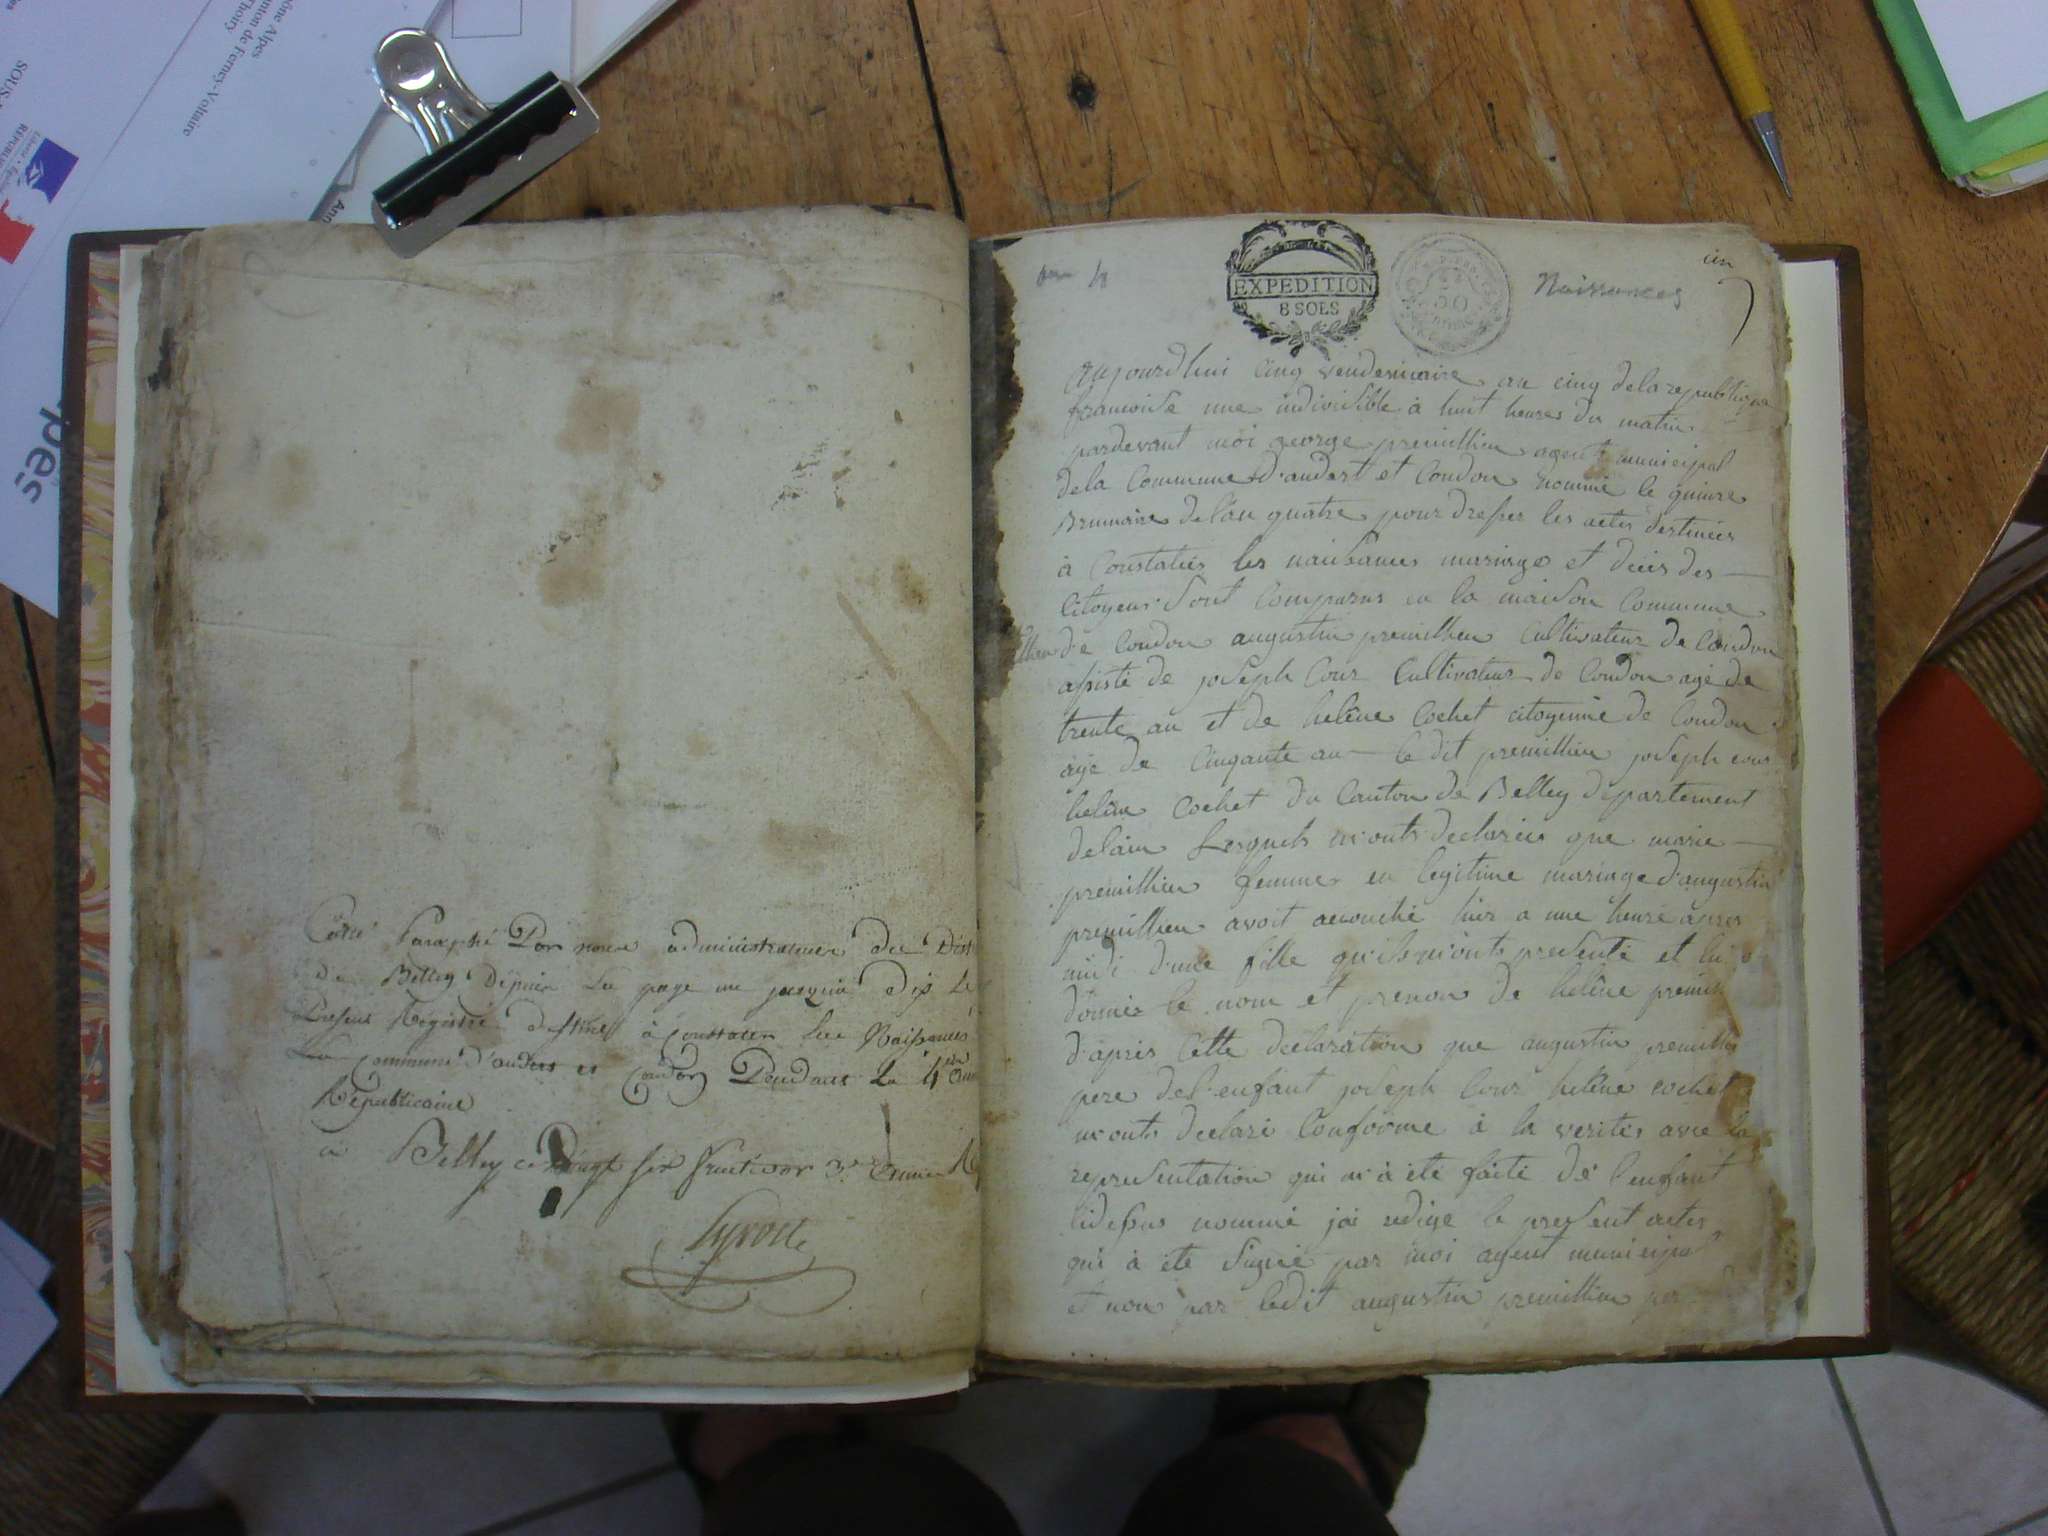 ône Alpes
anton de Ferney-Voltaire
Thoiry
SOUS-
RÉPUBLI
Ann
pes
Cotté Paraphé Par nous administrateur du Dist
de Belley Depuis la page un jusqu'a dix le
Present Régistre destiné à constater les Naissances
La Commune d'andert et Condon Pendant la 4eme
Républicaine
a Belley ce vingt six fructidor 3e année R
an 4
EXPEDITION
8 SOLS
Naissances
un
aujourdhui cinq vendemiaire an cinq dela republique
francoise une indivisible à huit heures du matin
pardevant moi george premillieu agent municipal
dela Commune d'andert et Condon nommé le quinze
Brumaire de l'an quatre pour dresser les actes destinées
à Constatées les naissances mariage et décès des
Citoyens sont Comparus en la maison Commune
de Condon augustin premillieu Cultivateur de Condon
assisté de joseph Cour Cultivateur de Condon agé de
trente an et de helêne Cochet citoyenne de Condon
agé de Cinqante an le dit premillieu joseph cour
helêne Cochet du Canton de Belley departement
delain Lesquels m'onts declarées que marie
premillieu femme en legitime mariage d'augustin
premillieu avoit accouché hier a une heure apres
midi d'une fille qu'ils m'onts presenté et lui
donner le nom et prenom de helêne premil
d'après Cette declaration que augustin premillie
pere del'enfant joseph Cour helêne cochet
m'onts declaré Conforme à la verités avec la
representation qui m'à été faite de l'enfant
cidessus nommé jai redigé le present actes
qui à été signé par moi agent municipal
et non par ledit augustin premillieu